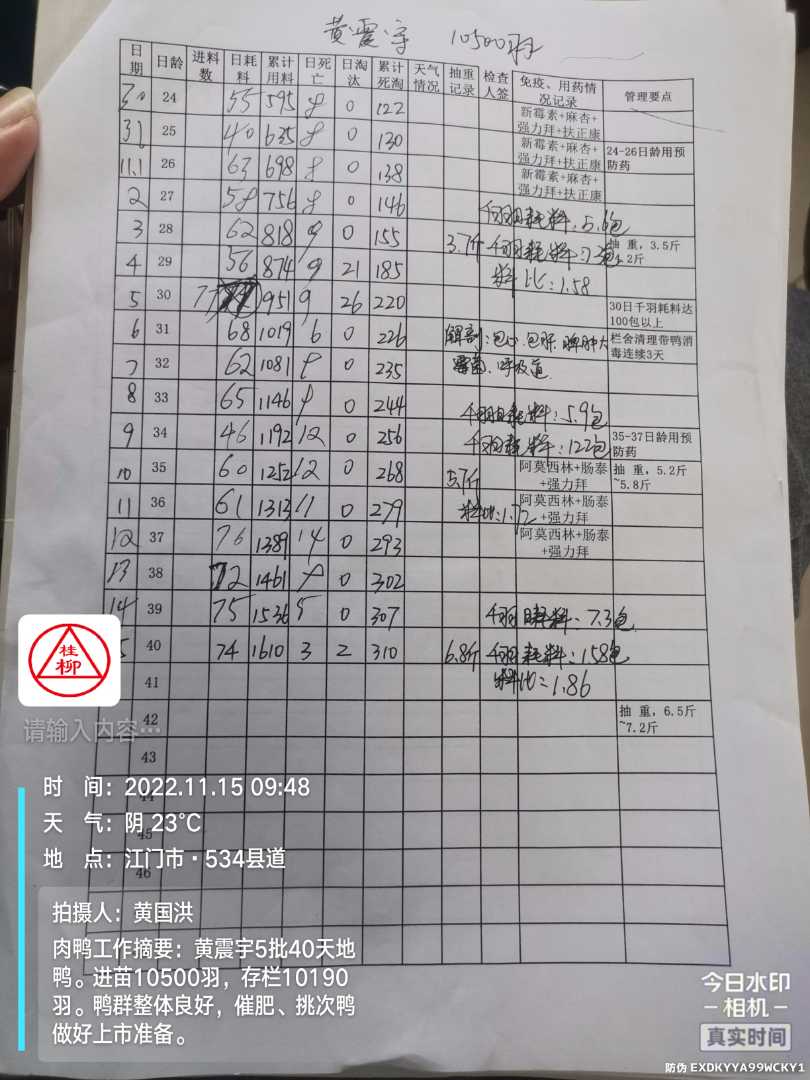 黄震宇 10500羽
日期 日龄 进料数 日耗料 累计用料 日死亡 日淘汰 累计死淘 天气情况 抽重记录 检查人签 免疫、用药情况记录 管理要点
30 24 55 595 8 0 122 新霉素+麻杏+强力拜+扶正康
31 25 40 635 8 0 130 新霉素+麻杏+强力拜+扶正康 24-26日龄用预防药
11.1 26 63 698 8 0 138 新霉素+麻杏+强力拜+扶正康
2 27 58 756 8 0 146 千羽日耗料:5.6包
3 28 62 818 9 0 155 3.7斤 千羽耗料: 抽重,3.5斤
4 29 56 874 9 21 185 料比:1.58
5 30 77 951 9 26 220 30日千羽耗料达100包以上
6 31 68 1019 6 0 226 解剖:包心.包肝.脾肿大 栏舍清理带鸭消毒连续3天
7 32 62 1081 9 0 235 霉菌、呼吸道
8 33 65 1146 9 0 244 千羽日耗料:5.9包
9 34 46 1192 12 0 256 千羽耗料:122包 35-37日龄用预防药
10 35 60 1252 12 0 268 5.7斤 阿莫西林+肠泰+强力拜 抽重,5.2斤~5.8斤
11 36 61 1313 11 0 279 料比:1.72 阿莫西林+肠泰+强力拜
12 37 76 1389 14 0 293 阿莫西林+肠泰+强力拜
13 38 72 1461 9 0 302
14 39 75 1536 5 0 307 千羽日耗料:7.3包
5 40 74 1610 3 2 310 6.8斤 千羽耗料:158包
41 料比=1.86
42 抽重,6.5斤~7.2斤
43
44
45
46
桂柳
请输入内容…
时 间:2022.11.15 09:48
天 气:阴 23℃
地 点:江门市·534县道
拍摄人:黄国洪
肉鸭工作摘要:黄震宇5批40天地
鸭。进苗10500羽,存栏10190
羽。鸭群整体良好,催肥、挑次鸭
做好上市准备。
今日水印
-相机-
真实时间
防伪 EXDKYYA99WCKY1